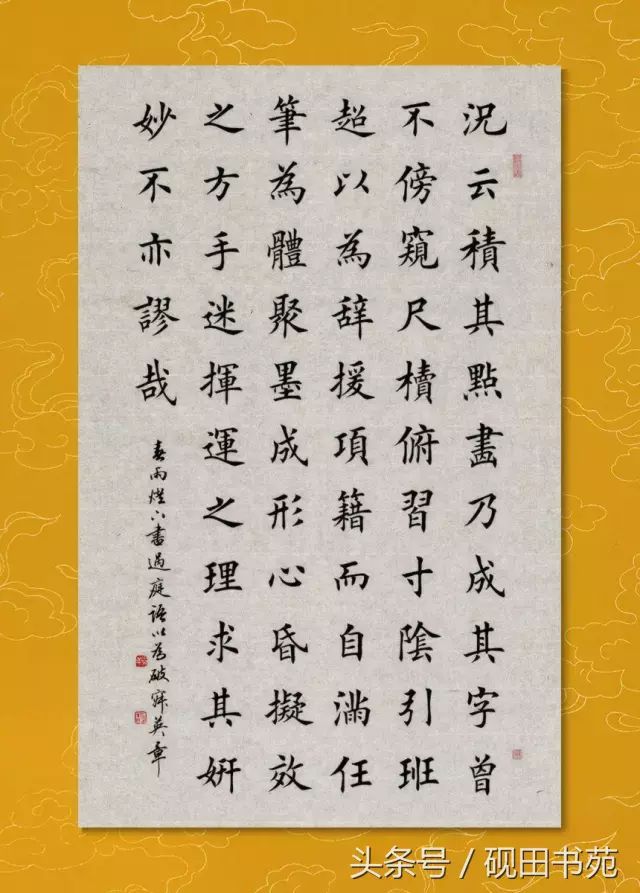 况云積其點畫乃成其字曾
不傍窺尺櫝俯習寸陰引班
超以為辞援項籍而自滿任
筆為體聚墨成形心昏擬效
之方手迷揮運之理求其妍
妙不亦謬哉
春雨燈下書過庭語以為破寐英章
头条号 / 砚田书苑